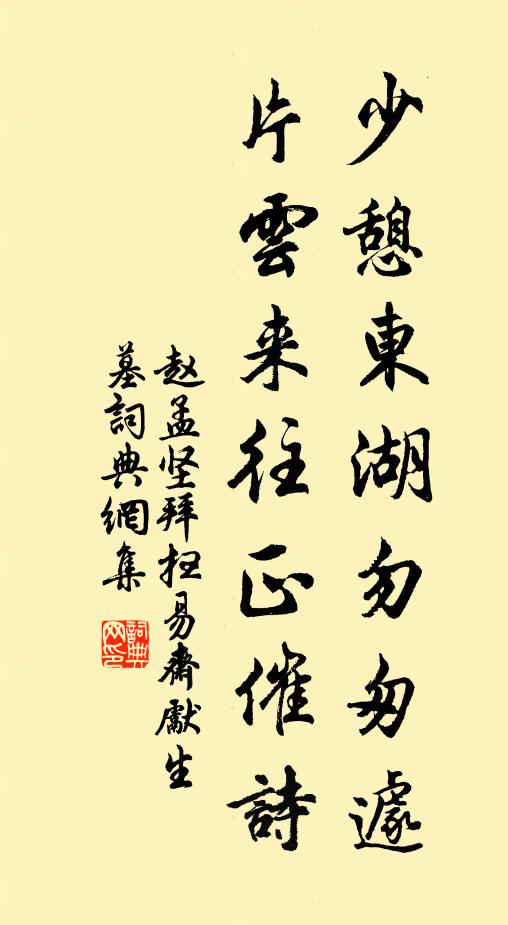 少憩東湖勿匆遽
片雲来往正催詩
赵孟坚拜抂易齋獻生
墓詞典網集
詞典網印